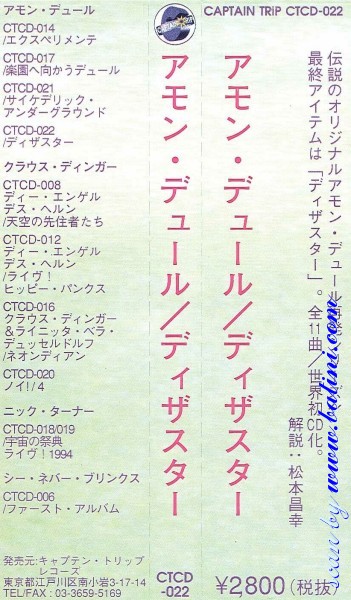 アモン・デュール
CTCD-014
/エクスペリメンテ
CTCD-017
/楽園へ向かうデュール
CTCD-021
/サイケデリック・
アンダーグラウンド
CTCD-022
/ディザスター
クラウス・ディンガー
CTCD-008
ディー・エンゲル
デス・ヘルン
/天空の先住者たち
CTCD-012
ディー・エンゲル
デス・ヘルン
/ライヴ！
ヒッピー・パンクス
CTCD-016
クラウス・ディンガー
＆ライニッタ・ベラ・
デュッセルドルフ
/ネオンディアン
CTCD-020
ノイ！/4
ニック・ターナー
CTCD-018/019
/宇宙の祭典
ライヴ！1994
シー・ネバー・ブリンクス
CTCD-006
/ファースト・アルバム
発売元:キャプテン・トリップ
レコーズ
東京都江戸川区南小岩3-17-14
TEL/FAX : 03-3659-5169
CAPTAIN TRIP
アモン・デュール/ディザスター
CTCD
-022
CAPTAIN TRiP CTCD-022
伝説のオリジナルアモン・デュール再発
最終アイテムは「ディザスター」。全11曲/世界初CD化。
解説：松本昌幸
アモン・デュール/ディザスター
¥2800(税抜)
www.batini.com